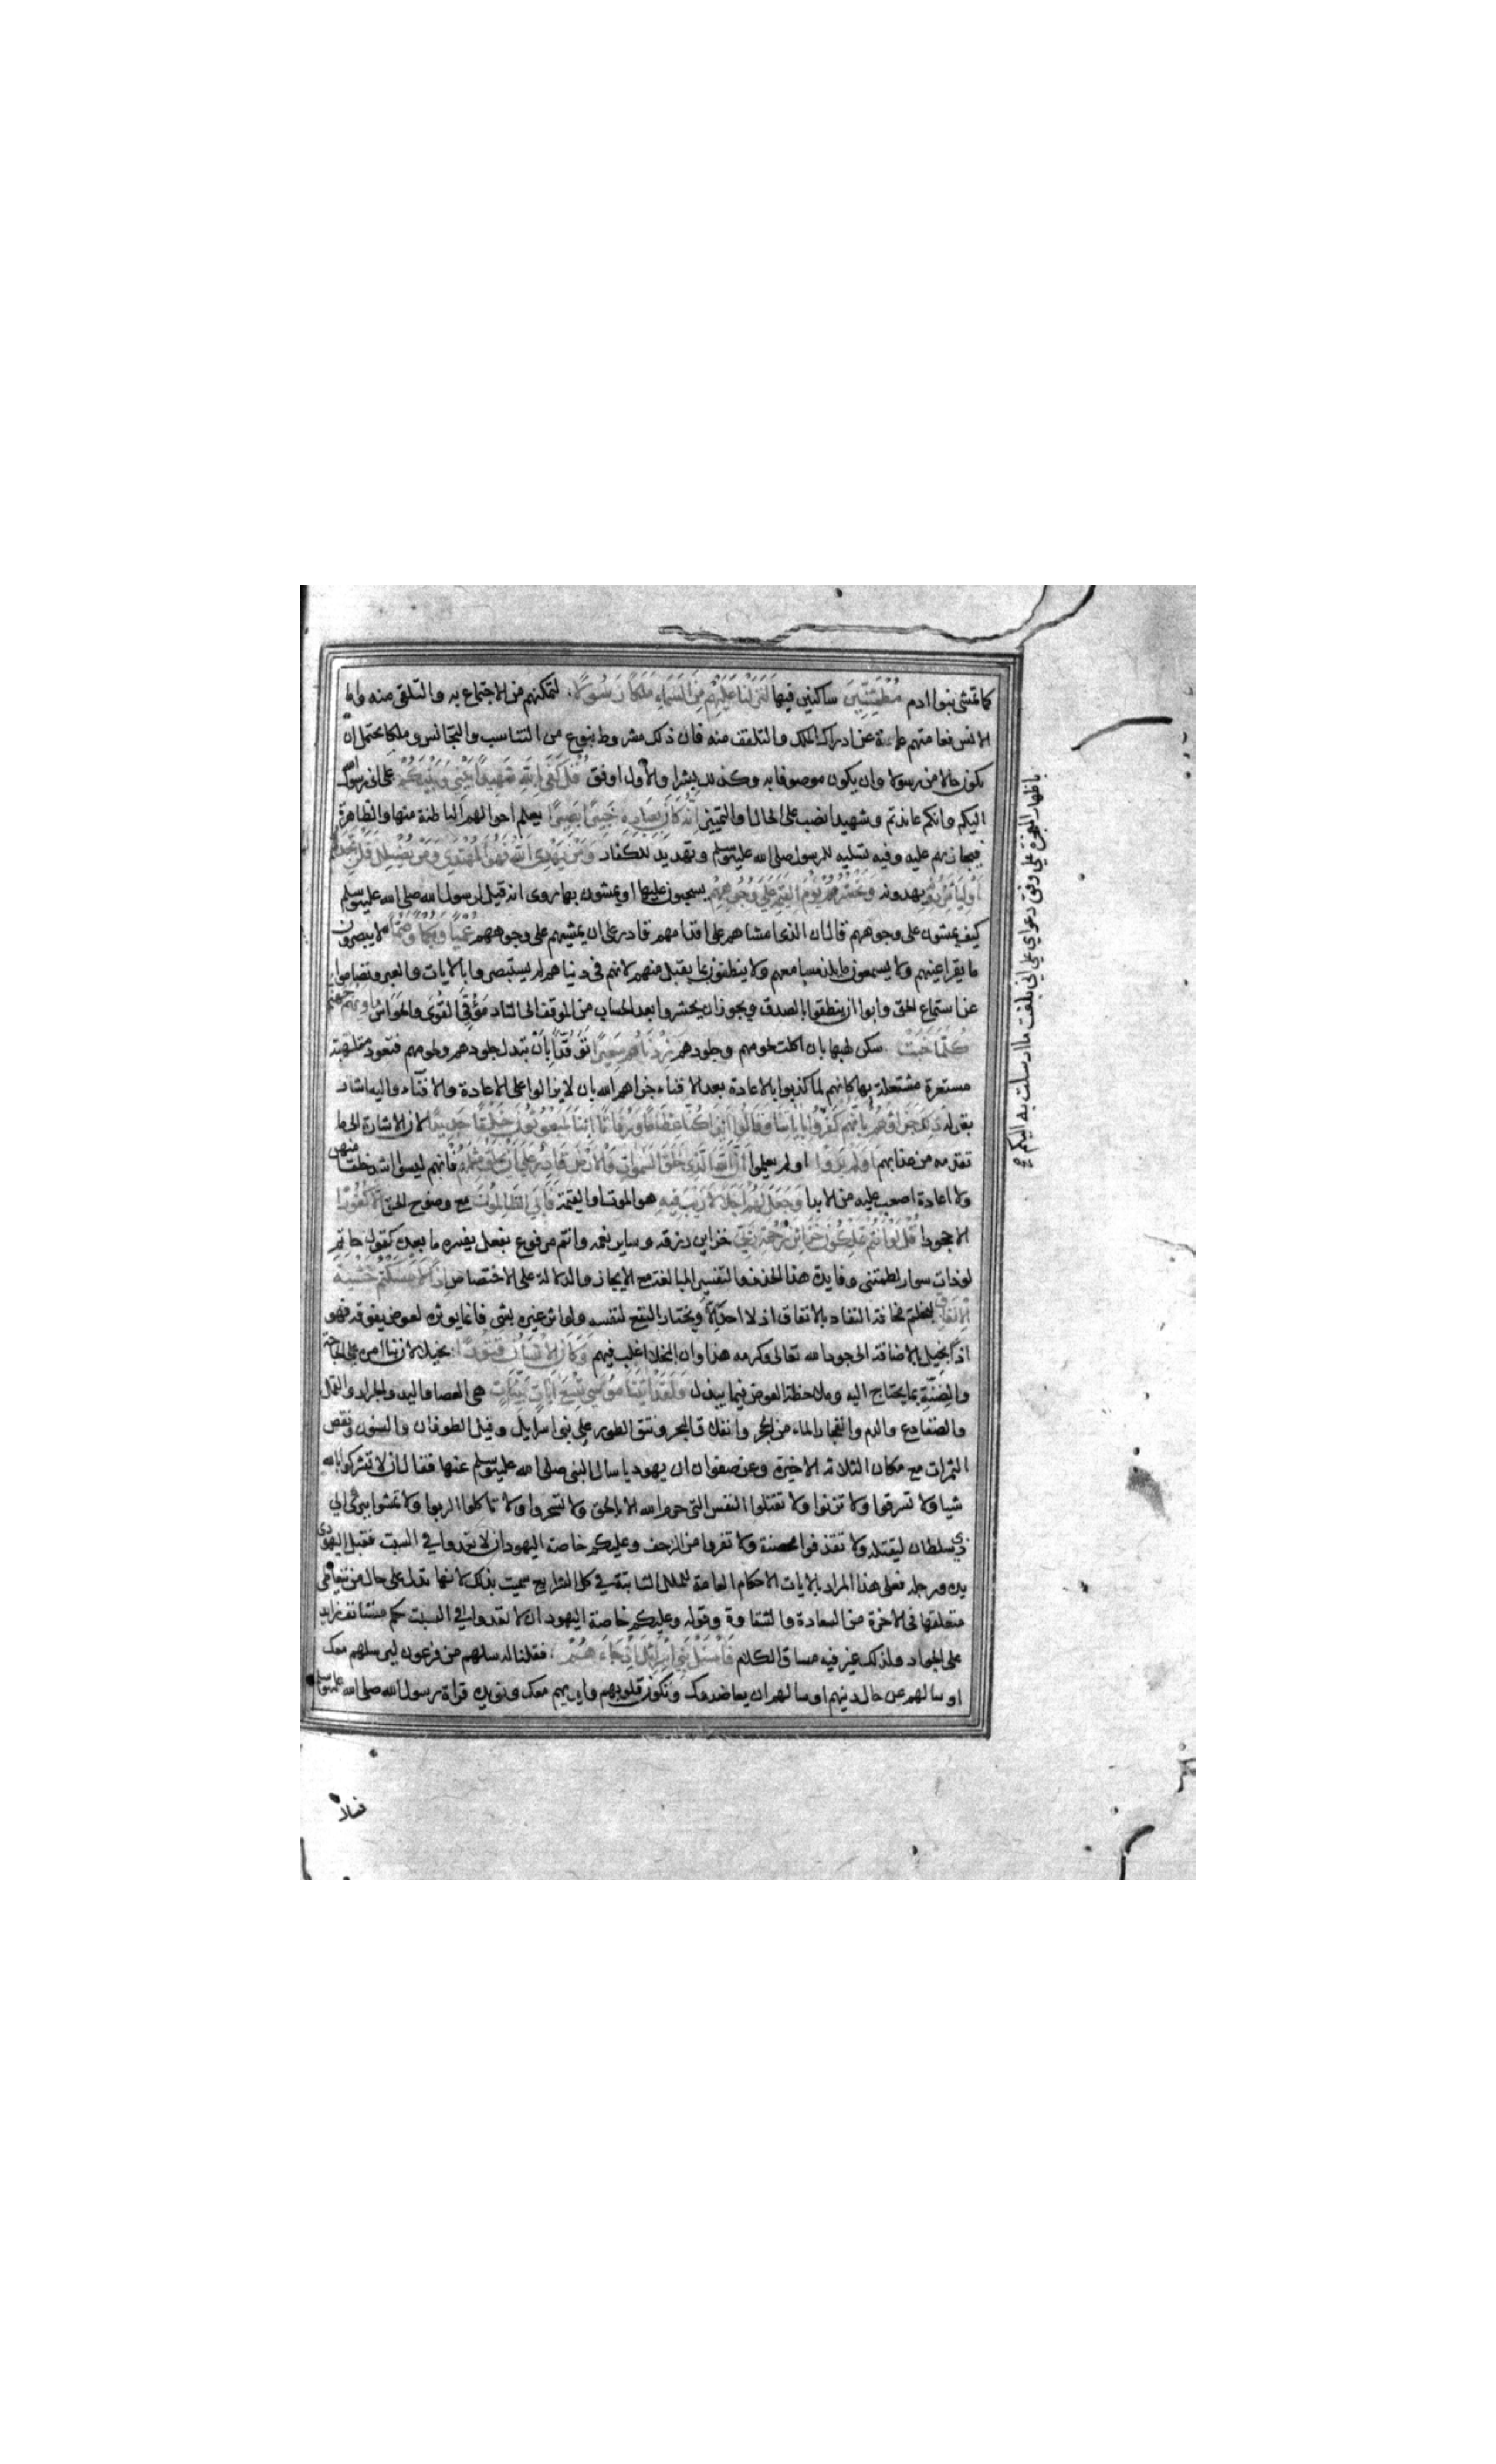 كما تمشى بنوا ادم مُطْمَئِنِّينَ ساكنين فيها لَنَزَّلْنَا عَلَيْهِم مِّنَ السَّمَاءِ مَلَكًا رَسُولًا لتمكنهم من الاجتماع به والتلقى منه واما
الانس فعامتهم عماة عن ادراك الملك والتلقف منه فان ذلك مشروط بنوع من التناسب والتجانس وملكا يحتمل ان
يكون حالا من رسولا وان يكون موصوفا به وكذلك بشرا والاول اوفق قُلْ كَفَى بِاللَّهِ شَهِيدًا بَيْنِي وَبَيْنَكُمْ على انى رسول الله
اليكم وانكم عاندتم وشهيدا نصب على الحال او التمييز إِنَّهُ كَانَ بِعِبَادِهِ خَبِيرًا بَصِيرًا يعلم احوالهم الباطنة منها والظاهرة
فيجازيهم عليه وفيه تسليه للرسول صلى الله عليه وسلم وتهديد للكفار وَمَنْ يَهْدِي اللَّهُ فَهُوَ الْمُهْتَدِي وَمَنْ يُضْلِلْ فَلَنْ تَجِدَ لَهُمْ
أَوْلِيَاءَ مِنْ دُونِهِ يهدونه وَنَحْشُرُهُمْ يَوْمَ الْقِيٰمَةِ عَلَى وُجُوهِهِمْ يسحبون عليها او يمشون بها روى انه قيل لرسول الله صلى الله عليه وسلم
كيف يمشون على وجوههم قال ان الذى امشاهم على اقدامهم قادر على ان يمشيهم على وجوههم عُمْيًا وَبُكْمًا وَصُمًّا لا يبصرون
ما يقر اعينهم ولا يسمعون ما يلذ مسامعهم ولا ينطقون بما يقبل منهم لانهم فى دنياهم لم يستبصروا بالايات والعبر وتصاموا
عن استماع الحق وابوا ان ينطقوا بالصدق ويجوز ان يحشروا بعد الحساب من الموقف الى النار مَؤُفِّي القُوَى والحَواسّ مَأْوٰيهُمْ جَهَنَّمُ
كُلَّمَا خَبَتْ سكن لهبها بان اكلت لحومهم وجلودهم زِدْنَاهُمْ سَعِيرًا تَوَقُّدًا بِأَنْ نبدل جلودهم ولحومهم فتعود ملتهبة
مستعرة مشتعلة بها كانهم لما كذبوا بالاعادة بعد الافناء جزاهم الله بان لا يزالوا على الاعادة والافنآء واليه اشار
بقوله ذٰلِكَ جَزَاؤُهُمْ بِأَنَّهُمْ كَفَرُوا بِآيَاتِنَا وَقَالُوا أَئِذَا كُنَّا عِظَامًا وَرُفَاتًا أَئِنَّا لَمَبْعُوثُونَ خَلْقًا جَدِيدًا لان الاشارة الى ما
تقدمه من عذابهم أَوَلَمْ يَرَوْا اولم يعلموا أَنَّ اللَّهَ الَّذِي خَلَقَ السَّمٰوَاتِ وَالْأَرْضَ قَادِرٌ عَلَى أَنْ يَخْلُقَ مِثْلَهُمْ فانهم ليسوا اشد خلقا منهن
ولا اعادة اصعب عليه من الابدا وَجَعَلَ لَهُمْ أَجَلًا لَا رَيْبَ فِيهِ هو الموت او القيمة فَأَبَى الظَّالِمُونَ مع وضوح الحق إِلَّا كُفُورًا
الا جحودا قُلْ لَوْ أَنْتُمْ تَمْلِكُونَ خَزَائِنَ رَحْمَةِ رَبِّي خزاين رزقه وساير نعمه وانتم مرفوع بفعل يفسره ما بعده كقول حاتم
لو ذات سوار لطمتنى وفايدة هذا الحذف والتفسير المبالغة مع الايجاز والدلالة على الاختصاص إِذًا لَأَمْسَكْتُمْ خَشْيَةَ
الْإِنْفَاقِ لبخلتم مخافة النفاد بالانفاق اذ لا احد الا ويختار النفع لنفسه ولو اثر غيره بشى فانما يوثره لعوض يفوقه فهو
اذًا بخيل بالاضافة الى جود الله تعالى وكرمه هذا وان البخلا اغلب فيهم وَكَانَ الْإِنْسَانُ قَتُورًا بخيلا لان بنا امره على الحاجة
والضِّنَّةِ بما يحتاج اليه وملاحظة العوض فيما يبذل وَلَقَدْ آتَيْنَا مُوسَى تِسْعَ آيَاتٍ بَيِّنَاتٍ هى العصا واليد والجراد والقمل
والضفادع والدم وانفجار الماء من الحجر وانفلاق البحر ونتق الطور على بنى اسرايل وقيل الطوفان والسنون ونقص
الثمرات مع مكان الثلاثة الاخيرة وعن صفوان ان يهوديا سال النبى صلى الله عليه وسلم عنها فقال ان لا تشركوا بالله
شيا ولا تسرقوا ولا تزنوا ولا تقتلوا النفس التى حرم الله الا بالحق ولا تسحروا ولا تاكلوا الربوا ولا تمشوا ببرئ الى
ذى سلطان ليقتله ولا تقذفوا محصنة ولا تفروا من الزحف وعليكم خاصة اليهود ان لا تعدوا في السبت فقبل اليهودى
يده ورجله فعلى هذا المراد بالايات الاحكام العامة للملل الثابتة في كل الشرايع سميت بذلك لانها تدل على حال من يتعاطى
متعلقها فى الاخرة من السعادة والشقاوة وقوله وعليكم خاصة اليهود ان لا تعدوا في السبت حكم مستانف زايد
على الجواب ولذلك غير فيه مساق الكلام فَاسْئَلْ بَنِي إِسْرَائِيلَ إِذْ جَاءَهُمْ فقلنا له سلهم من فرعون ليرسلهم معك
او سالهم عن حال دينهم او سالهم ان يعاضدوك وتكون قلوبهم وايديهم معك ويؤيده قراة رسول الله صلى الله عليه وسلم
باظهار المعجزة على وفق دعواى على انى بلغت ما ارسلت به اليكم
فسال